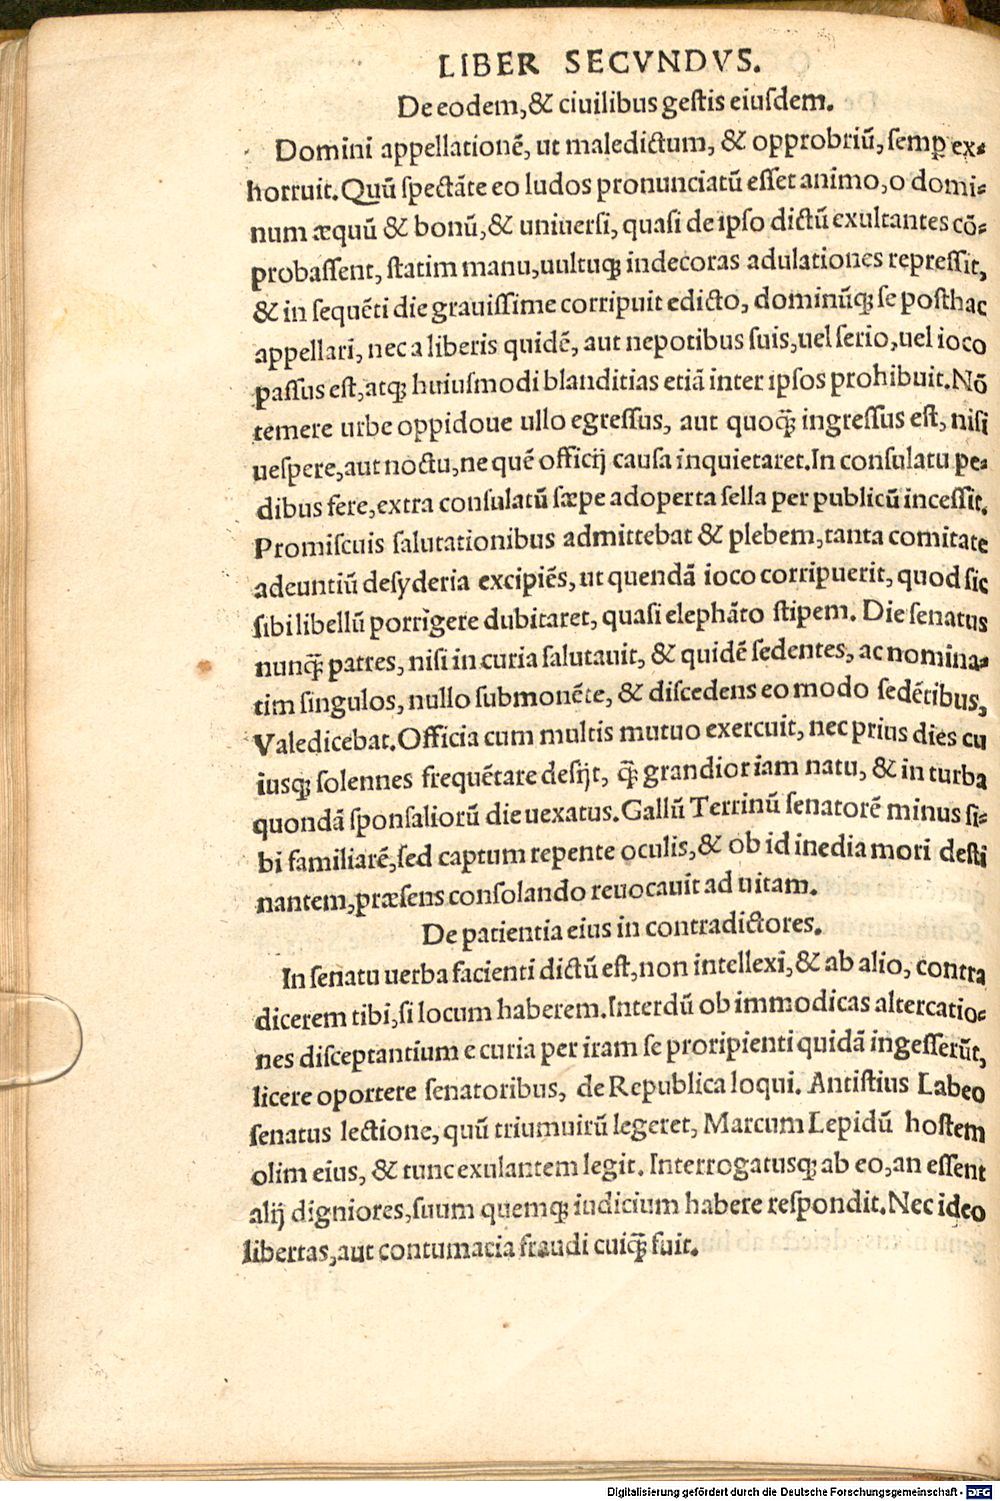 LIBER SECVNDVS.
De eodem, & ciuilibus gestis eiusdem.
Domini appellationē, ut maledictum, & opprobriū, semp̲ ex-
horruit. Quū spectāte eo ludos pronunciatū esset animo, o domi-
num æquū & bonū, & uniuersi, quasi de ipso dictū exultantes cō-
probassent, statim manu, uultuq; indecoras adulationes repressit,
& in sequēti die grauissime corripuit edicto, dominūq; se posthac
appellari, nec a liberis quidē, aut nepotibus suis, uel serio, uel ioco
passus est, atq; huiusmodi blanditias etiā inter ipsos prohibuit. Nō
temere urbe oppidoue ullo egressus, aut quoq̄ ingressus est, nisi
uespere, aut noctu, ne quē officij causa inquietaret. In consulatu pe-
dibus fere, extra consulatū sæpe adoperta sella per publicū incessit.
Promiscuis salutationibus admittebat & plebem, tanta comitate
adeuntiū desyderia excipiēs, ut quendā ioco corripuerit, quod sic
sibi libellū porrigere dubitaret, quasi elephāto stipem. Die senatus
nunq̄ patres, nisi in curia salutauit, & quidē sedentes, ac nomina-
tim singulos, nullo submonēte, & discedens eo modo sedētibus,
Valedicebat. Officia cum multis mutuo exercuit, nec prius dies cu
iusq; solennes frequētare desijt, q̄ grandior iam natu, & in turba
quondā sponsaliorū die uexatus. Gallū Terrinū senatorē minus si-
bi familiarē, sed captum repente oculis, & ob id inedia mori desti
nantem, præsens consolando reuocauit ad uitam.
De patientia eius in contradictores.
In senatu uerba facienti dictū est, non intellexi, & ab alio, contra
dicerem tibi, si locum haberem. Interdū ob immodicas altercatio-
nes disceptantium e curia per iram se proripienti quidā ingesserūt,
licere oportere senatoribus, de Republica loqui. Antistius Labeo
senatus lectione, quū triumuirū legeret, Marcum Lepidū hostem
olim eius, & tunc exulantem legit. Interrogatusq; ab eo, an essent
alij digniores, suum quemq; iudicium habere respondit. Nec ideo
libertas, aut contumacia fraudi cuiq̄ fuit.
Digitalisierung gefördert durch die Deutsche Forschungsgemeinschaft - DFG